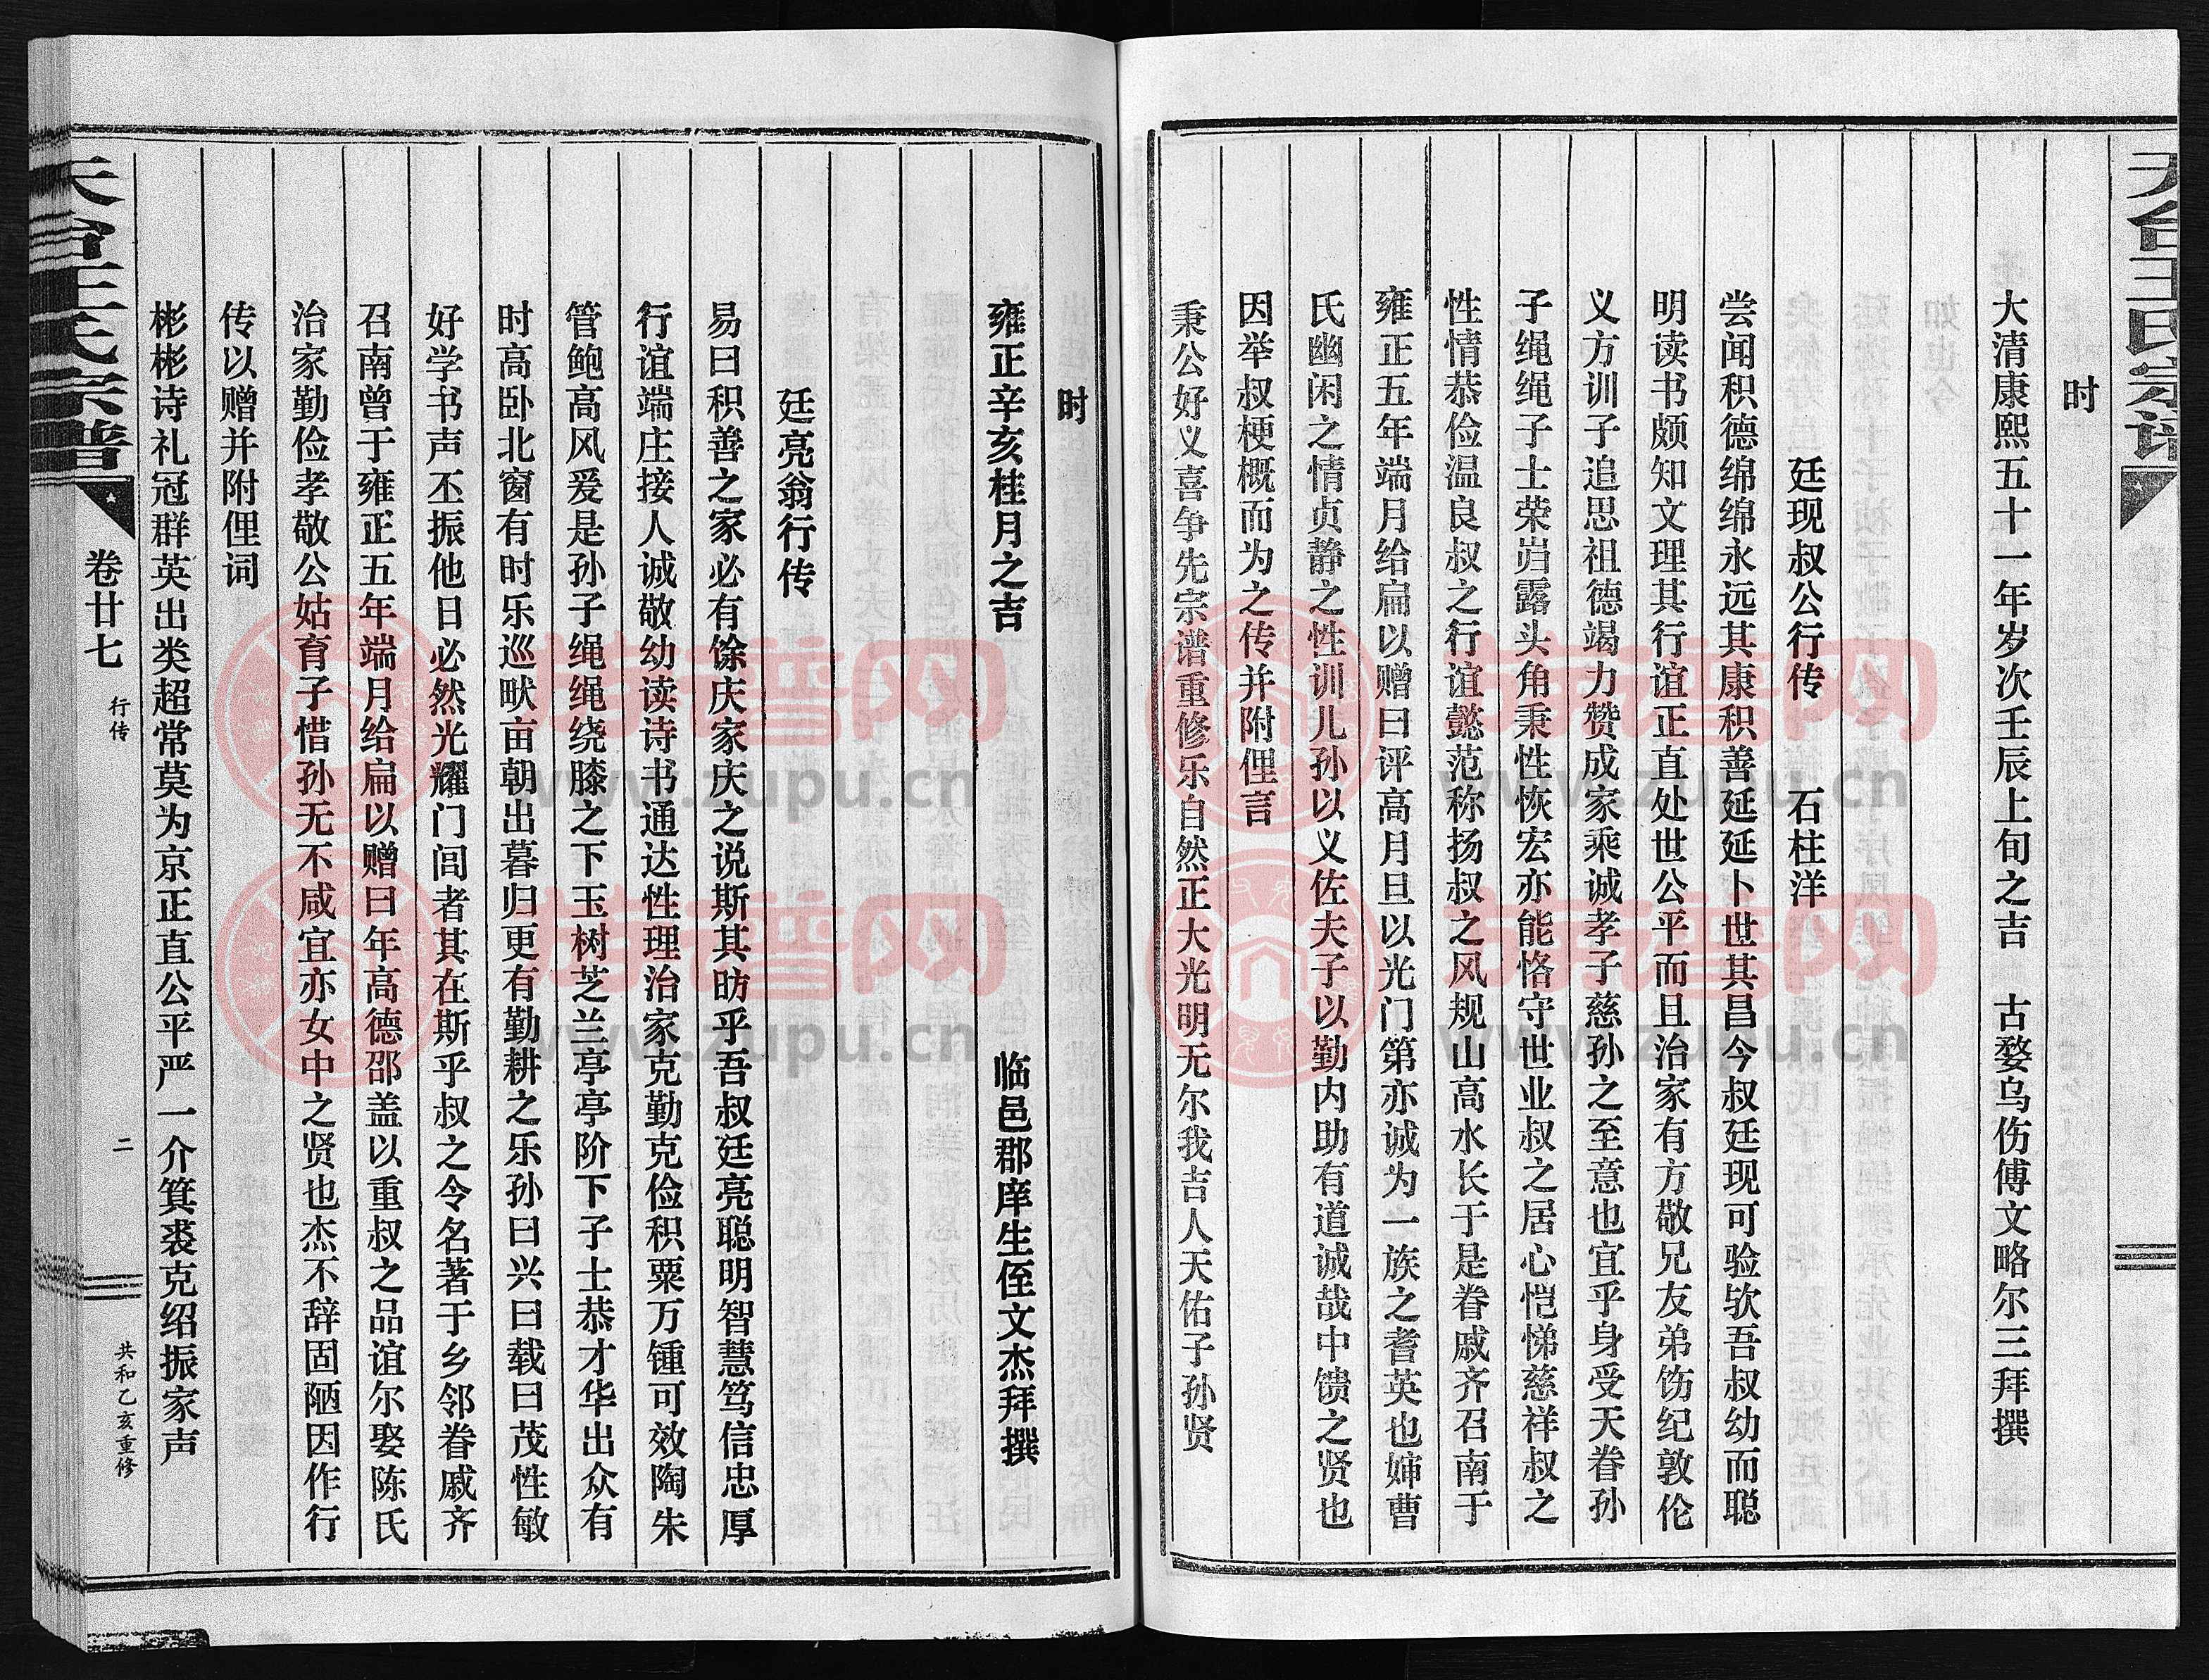 天台王氏宗谱
时
大清康熙五十一年岁次壬辰上旬之吉　古婺乌伤傅文略尔三拜撰
廷现叔公行传　石柱洋
尝闻积德绵绵永远其康积善延延卜世其昌今叔廷现可验欤吾叔幼而聪
明读书颇知文理其行谊正直处世公平而且治家有方敬兄友弟饬纪敦伦
义方训子追思祖德竭力赞成家乘诚孝子慈孙之至意也宜乎身受天眷孙
子绳绳子士荣岿露头角秉性恢宏亦能恪守世业叔之居心恺悌慈祥叔之
性情恭俭温良叔之行谊懿范称扬叔之风规山高水长于是眷戚齐召南于
雍正五年端月给扁以赠曰评高月旦以光门第亦诚为一族之耆英也婶曹
氏幽闲之情贞静之性训儿孙以义佐夫子以勤内助有道诚哉中馈之贤也
因举叔梗概而为之传并附俚言
秉公好义喜争先宗谱重修乐自然正大光明无尔我吉人天佑子孙贤
时
雍正辛亥桂月之吉　临邑郡庠生侄文杰拜撰
廷亮翁行传
易曰积善之家必有馀庆家庆之说斯其昉乎吾叔廷亮聪明智慧笃信忠厚
行谊端庄接人诚敬幼读诗书通达性理治家克勤克俭积粟万锺可效陶朱
管鲍高风爰是孙子绳绳绕膝之下玉树芝兰亭亭阶下子士恭才华出众有
时高卧北窗有时乐巡畎亩朝出暮归更有勤耕之乐孙曰兴曰载曰茂性敏
好学书声丕振他日必然光耀门闾者其在斯乎叔之令名著于乡邻眷戚齐
召南曾于雍正五年端月给扁以赠曰年高德邵盖以重叔之品谊尔娶陈氏
治家勤俭孝敬公姑育子惜孙无不咸宜亦女中之贤也杰不辞固陋因作行
传以赠并附俚词
彬彬诗礼冠群英出类超常莫为京正直公平严一介箕裘克绍振家声
天台王氏宗谱
卷廿七
行传
二
共和乙亥重修
族谱网
www.zupu.cn
族谱网
www.zupu.cn
族谱网
www.zupu.cn
族谱网
www.zupu.cn